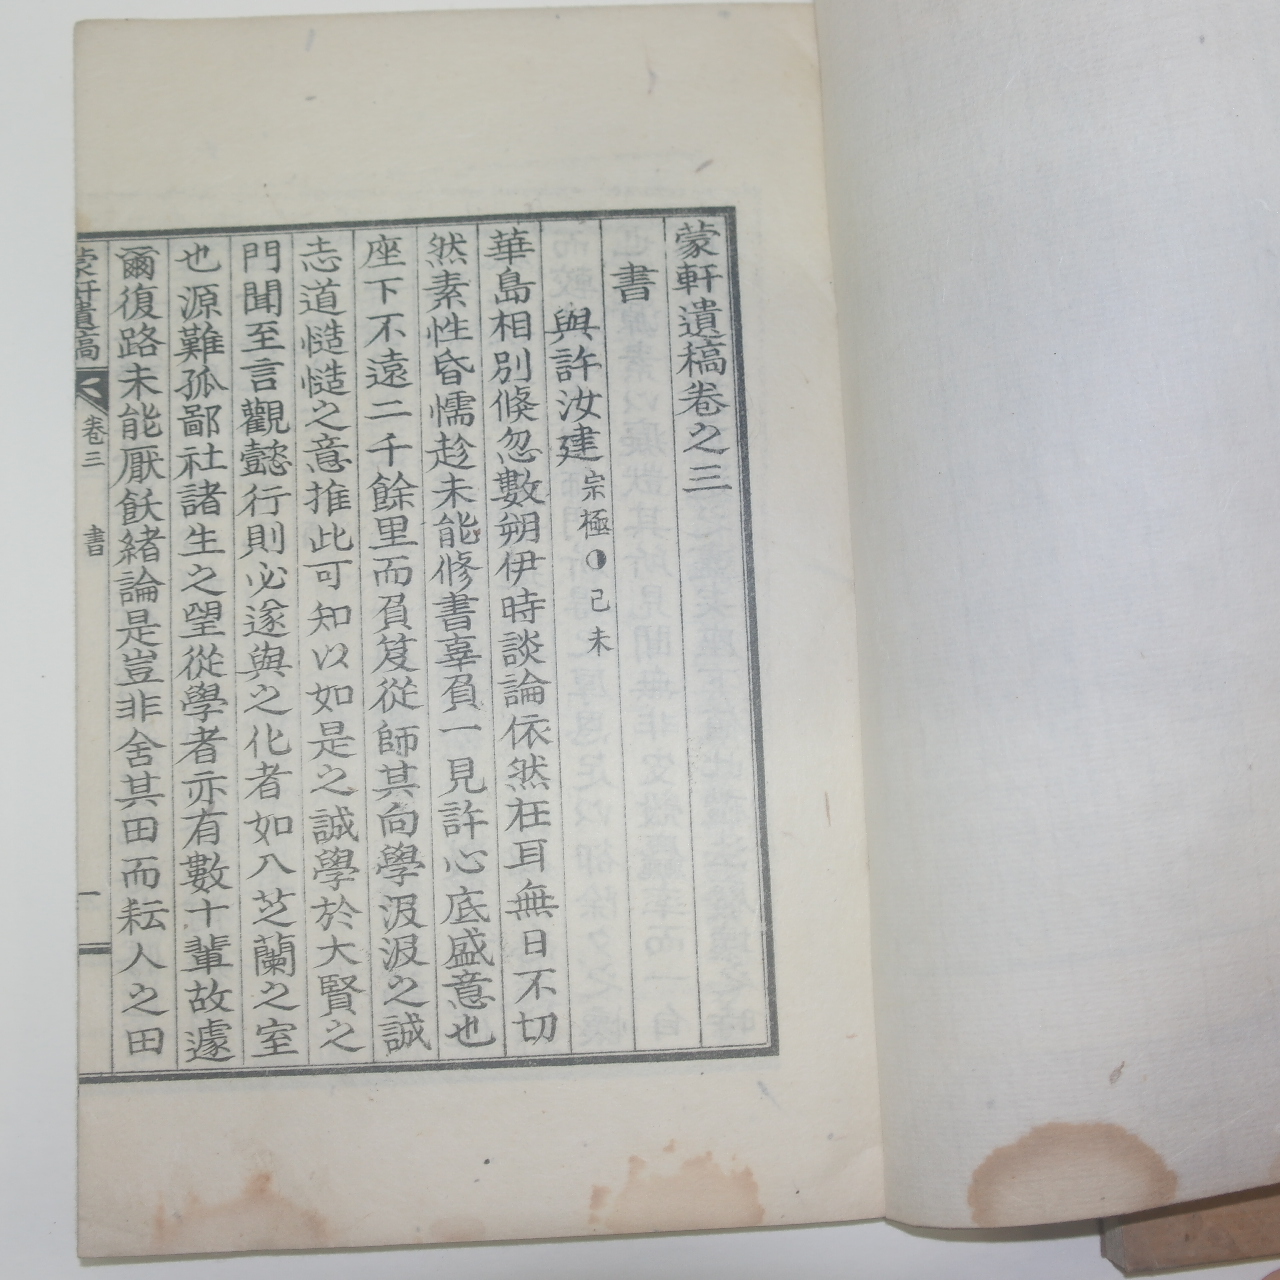 蒙軒遺稿卷之三
書
與許汝建宗極◑己未
華島相別倏忽數朔伊時談論依然在耳無日不切
然素性昏懦趁未能修書辜負一見許心底盛意也
座下不遠二千餘里而負笈從師其向學汲汲之誠
志道慥慥之意推此可知以如是之誠學於大賢之
門聞至言觀懿行則必遂與之化者如入芝蘭之室
也源難孤鄙社諸生之望從學者亦有數十輩故遽
爾復路未能厭飫緒論是豈非舍其田而耘人之田
蒙軒遺稿 卷三 書 一